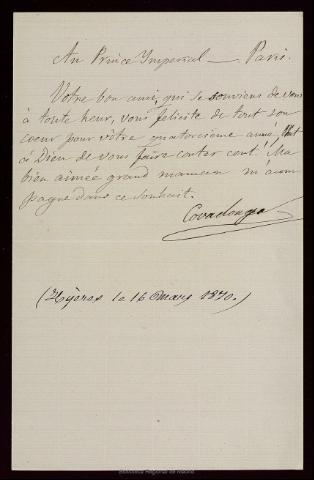 Au Prince Imperial — Paris.
Votre bon ami, qui se souviens de vous
à toute heur, vous félicite de tout son
coeur pour vôtre quatorcième anné,
à Dieu de vous faire conter cent. Ma
bien aimée grand maman m'acom
pagne dans ce souhait.
Covadonga
(Hyères le 16 Mars 1870.)
Biblioteca Regional de Madrid